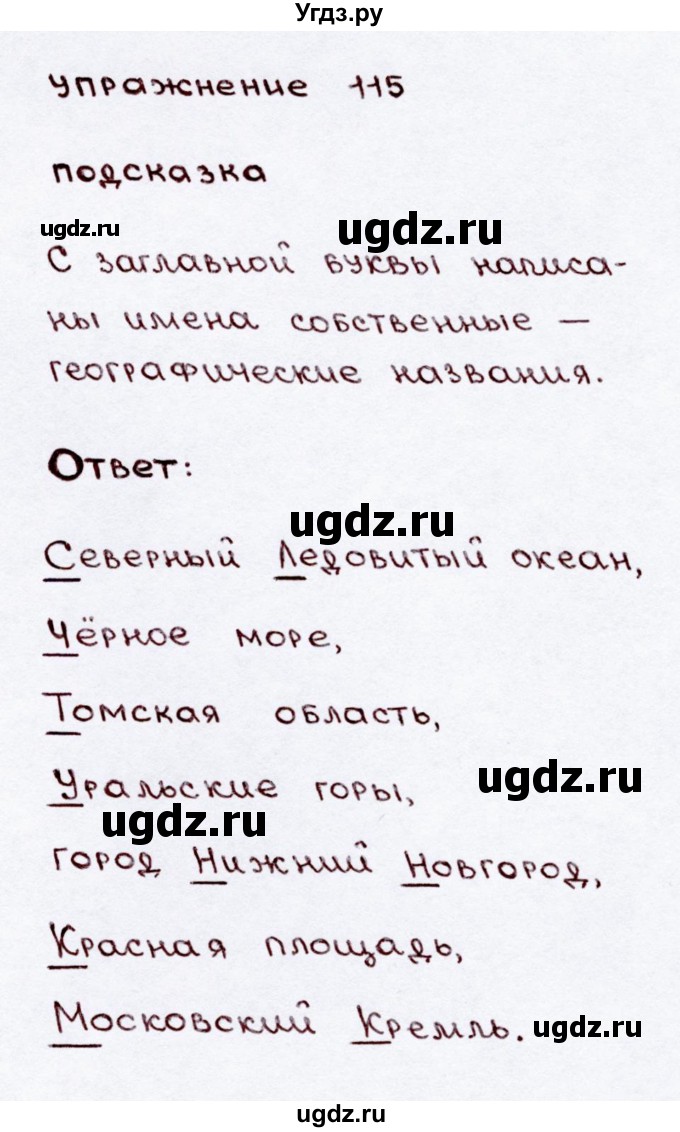 Угдз.ру
упражнение 115
подсказка
ugdz.ru
ugdz.ru
С заглавной буквы написа-
ны имена собственные —
географические названия.
Ответ:
ugdz.ru
Северный Ледовитый океан,
Чёрное море,
Томская область,
ugdz.ru
Уральские горы,
ugdz.ru
город Нижний Новгород,
Красная площадь,
Московский Кремль.
ugdz.ru
ugdz.ru